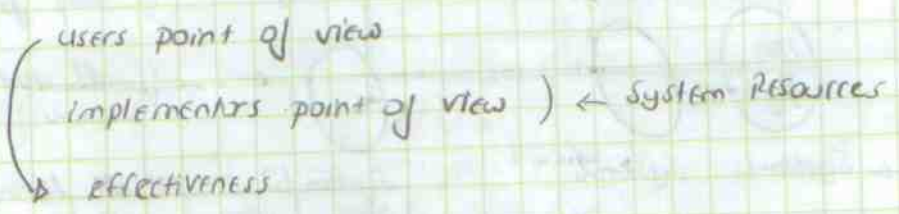 users point of view
implementrs point of view ) ← System Resources
effectiveness